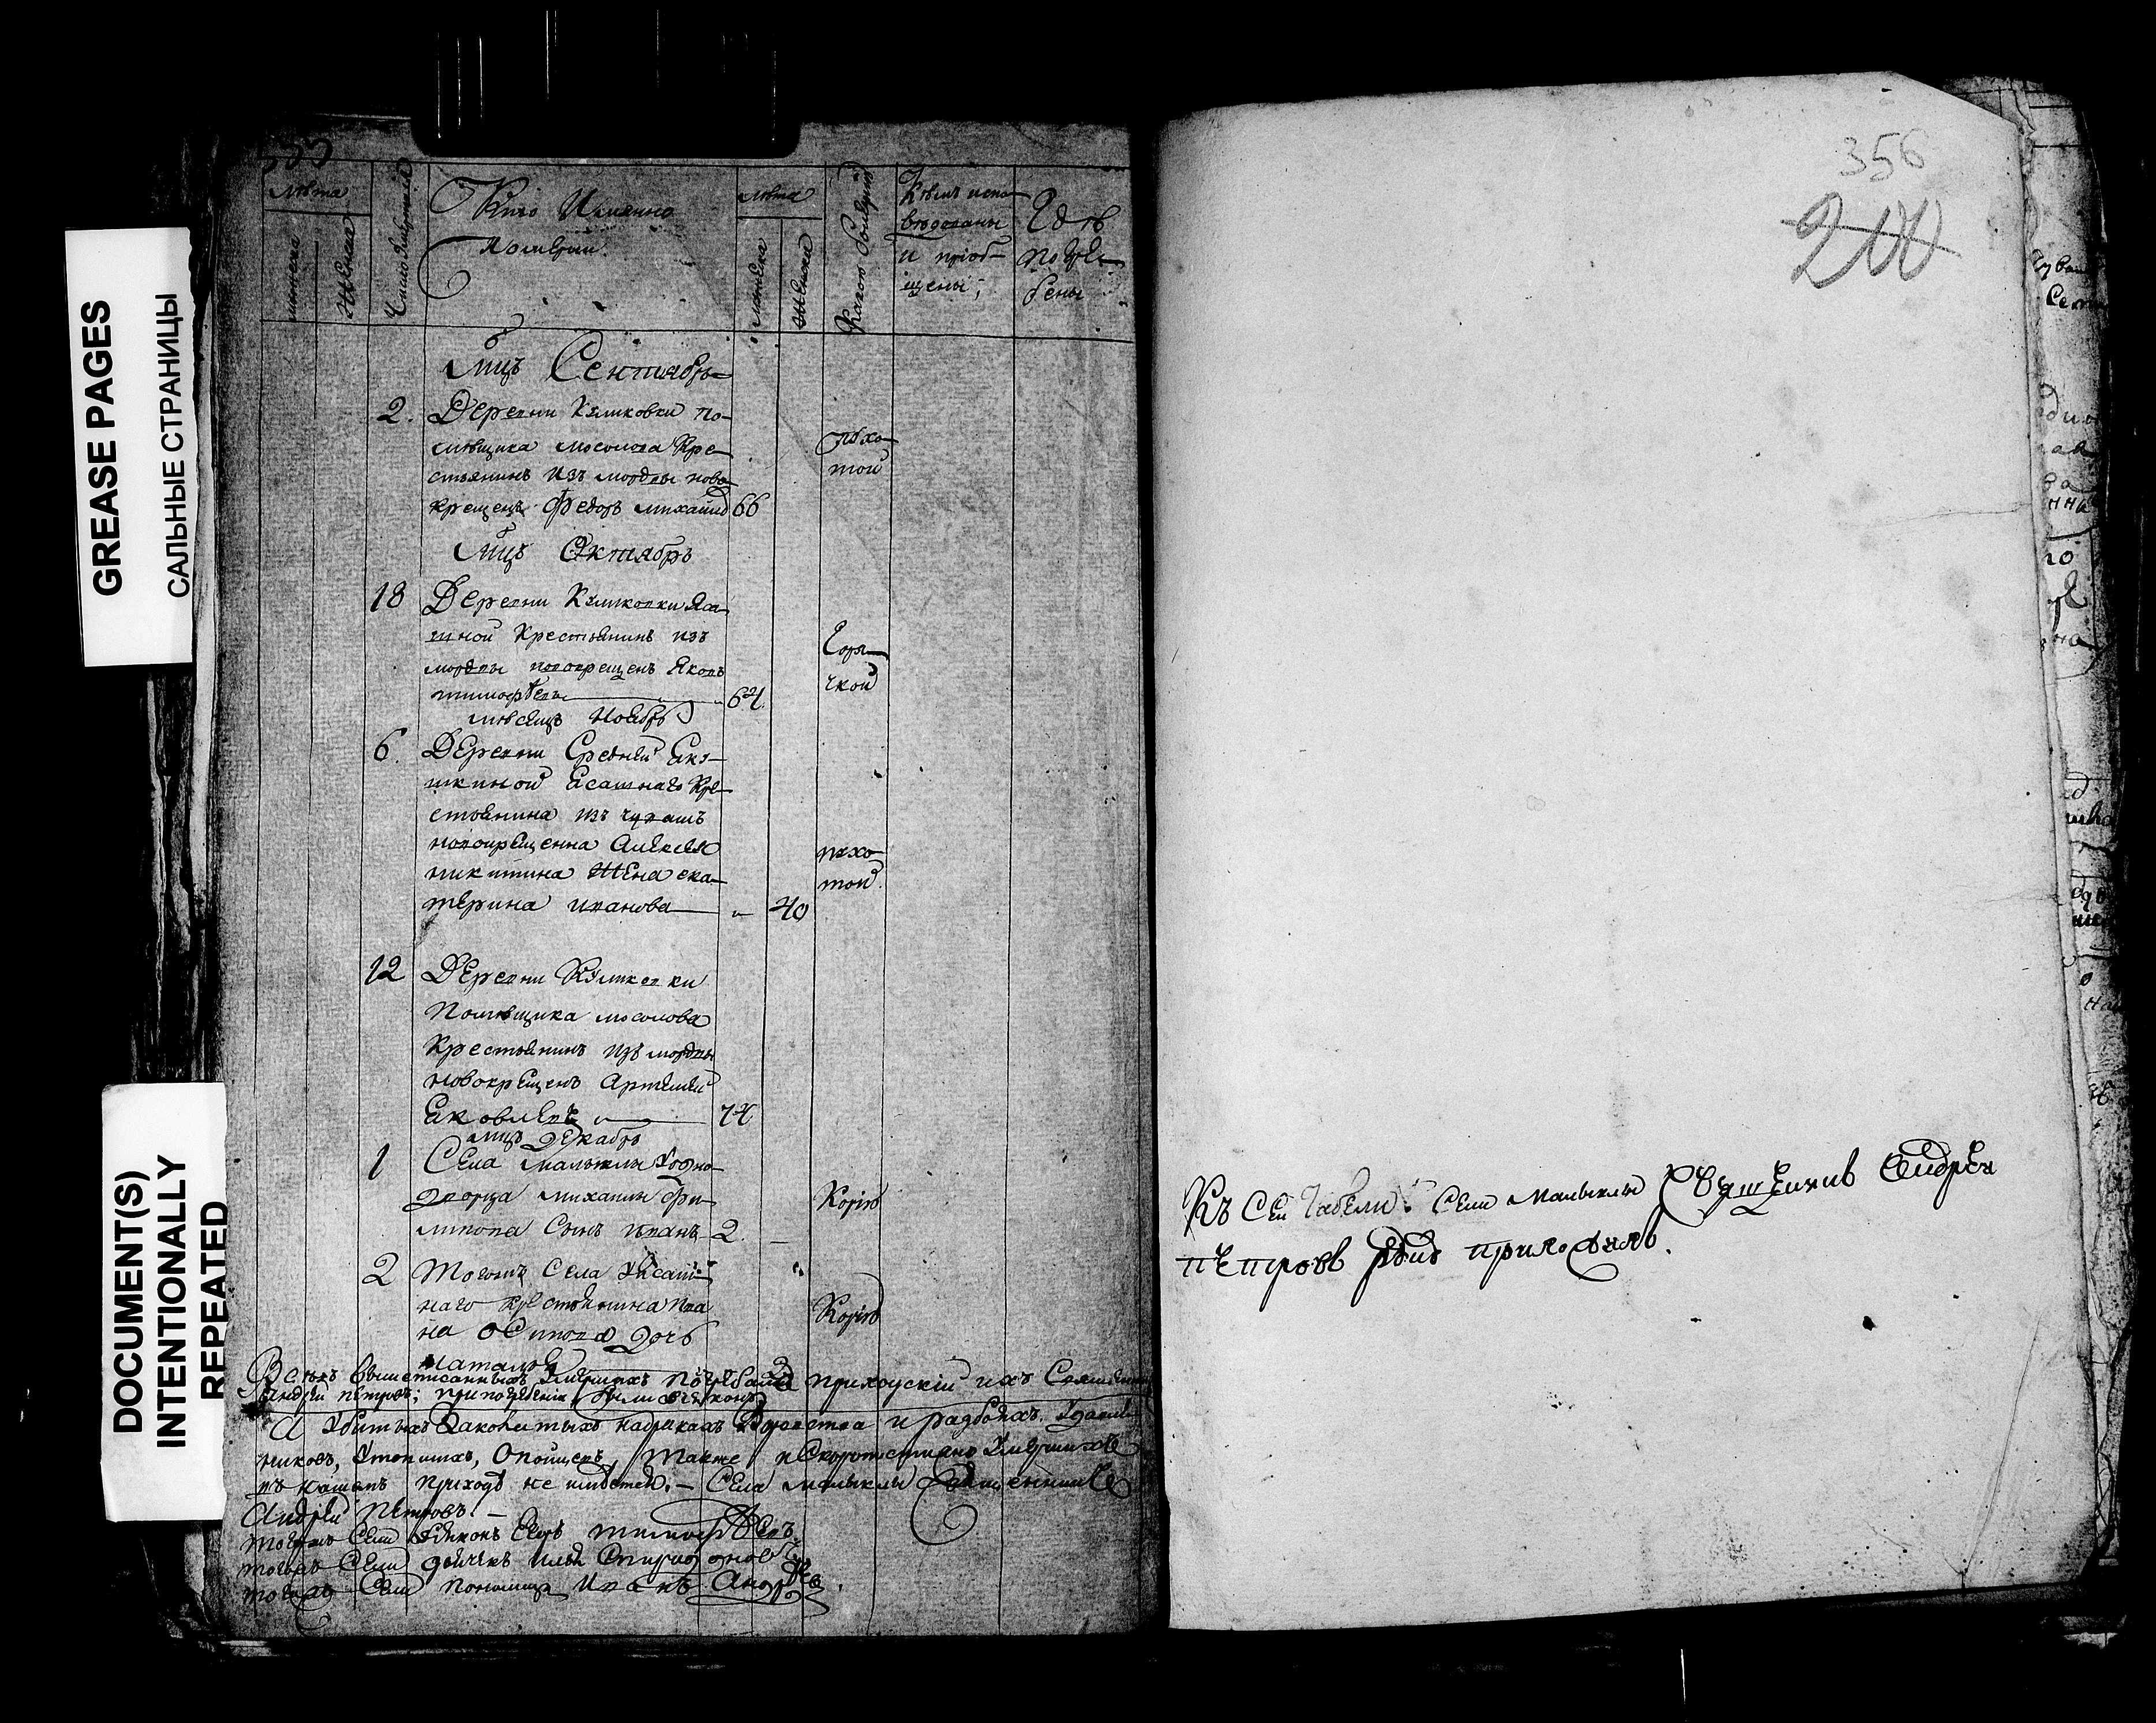 GREASE PAGES
САЛЬНЫЕ СТРАНИЦЫ
DOCUMENT(S)
INTENTIONALLY
REPEATED
лѣта
мужеска
женска
Число умертвія
Кто Имянно
Померли
лѣта
мужеска
женска
Какою болезнію
Кѣмъ испо-
вѣдованы
и пріоб-
щены;
Гдѣ
погре-
бены
Мцъ Сентябрь
2. Деревни Куликовки по-
мѣщика мосолова Кре-
стьянинъ изъ мордвы ново-
крещенъ федоръ михайло 66
чехо-
той
Мцъ Октябрь
18 Деревни Куликовки Яса-
шной Крестьянинъ изъ
мордвы новокрещенъ Яковъ
тимофѣевъ 64
Горя-
чкой
мѣсецъ Ноябрь
6. Деревни Средней
Ясашнаго Кре-
стьянина изъ чувашъ
новокрещенна Алексея
никитина Жена ека-
терина иванова 40
чехо-
той
12 Деревни Куликовки
Помѣщика мосолова
Крестьянинъ изъ мордвы
новокрещенъ Артемей
Яковлевъ 74
мцъ Декабрь
1 Села малыклы Уодно-
дворца михаилы фи-
липова Сынъ иванъ 2.
Корію
2 Тогожъ Села Уясаш-
наго крестьянина ива
на осипова дочь
наталья 2
Корію
Всѣхъ вышеписанныхъ Умершихъ погребалъ приходскій ихъ Священникъ
Андрей петровъ; при погребеніи были
А Убитыхъ на дракахъ воровства и разбояхъ. Удавле-
никовъ, Утопшихъ, Опойцевъ, Также и Скоропостижно Умершихъ
въ нашемъ приходѣ не имѣется. — Села малыклы Священникъ
Андрей Петровъ. —
тогожъ Села діаконъ тимофѣевъ
тогожъ Села дьячекъ илья Спиридоновъ
тогожъ Села пономарь Иванъ Андрѣевъ.
356
200
Къ Сей табели Села малыклы Священникъ Андрей
петровъ руку приложилъ.